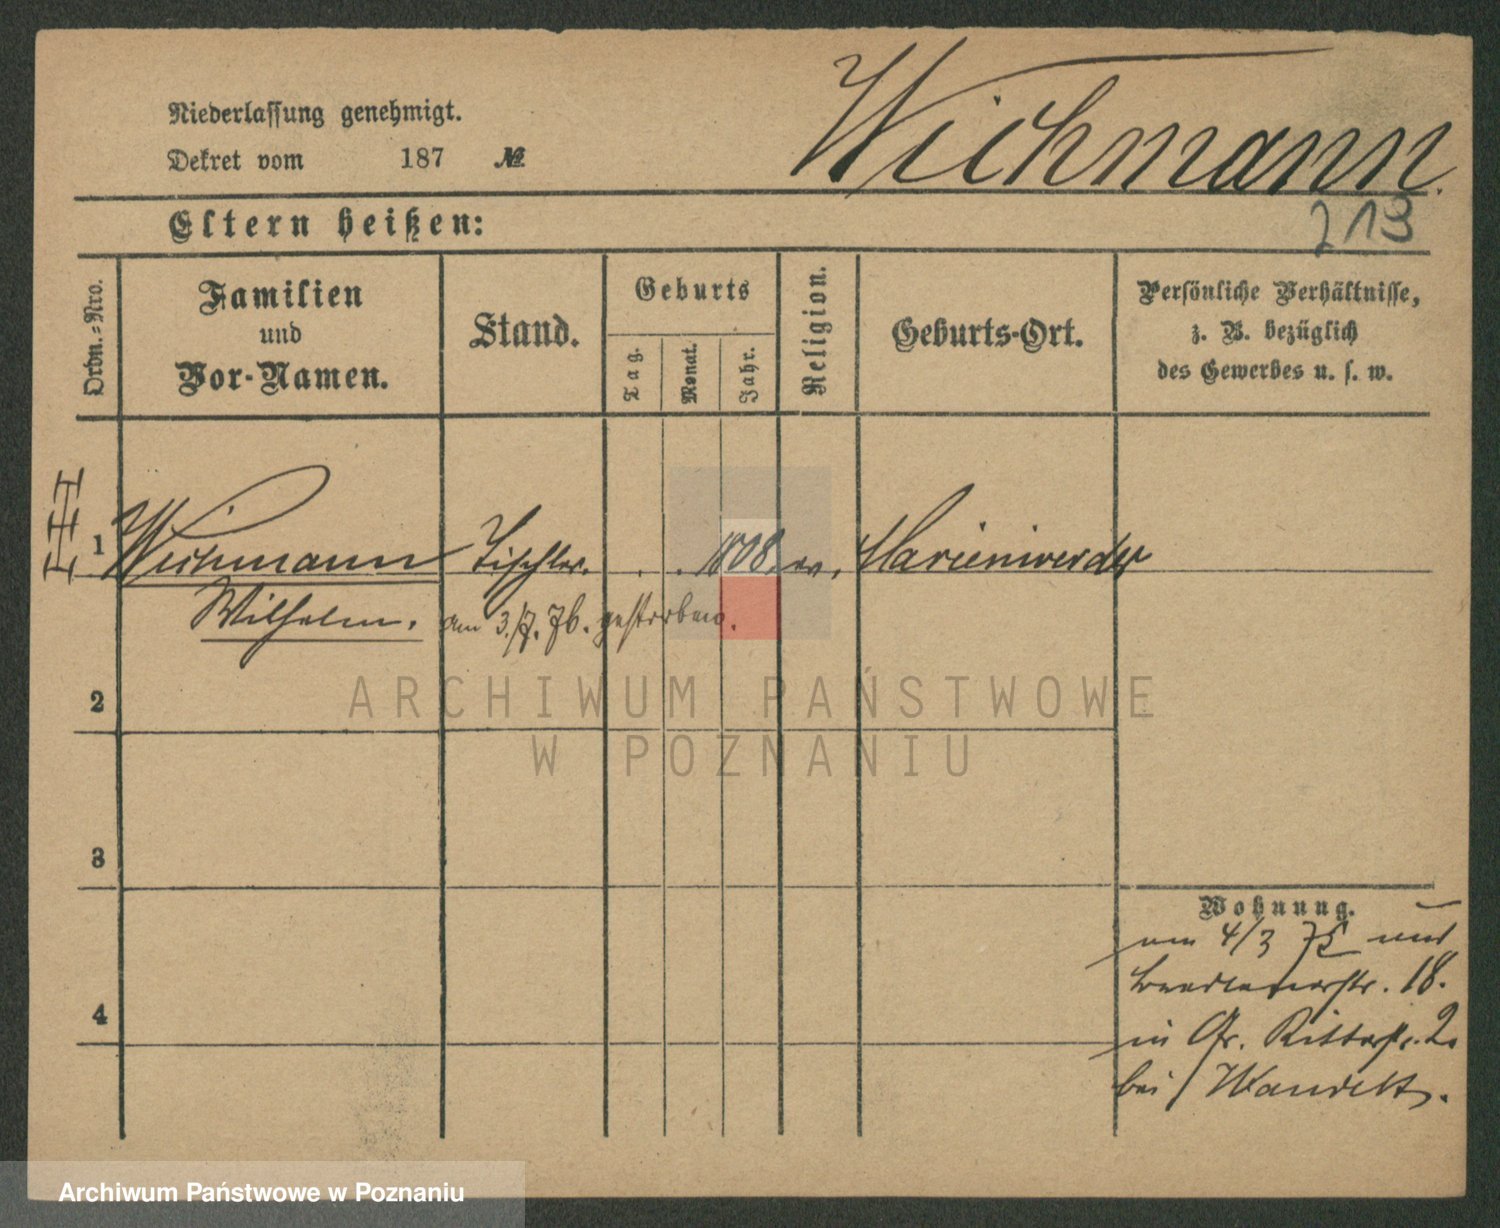 Niederlassung genehmigt.
Dekret vom 187 №
Wichmann.
213
Eltern heißen:
Ordn.=Nro.
Familien
und
Vor-Namen.
Stand.
Geburts
Tag.
Monat.
Jahr.
Religion.
Geburts-Ort.
Persönliche Verhältnisse,
z. B. bezüglich
des Gewerbes u. s. w.
1 Wichmann Tischler. . . 1808. ev. Marienwerder
Wilhelm. am 3./7. 76. gestorben.
2
3
4
ARCHIWUM PAŃSTWOWE
W POZNANIU
Wohnung.
am 4/3 75
18.
in Gr. Ritterstr. 2.
bei
Archiwum Państwowe w Poznaniu